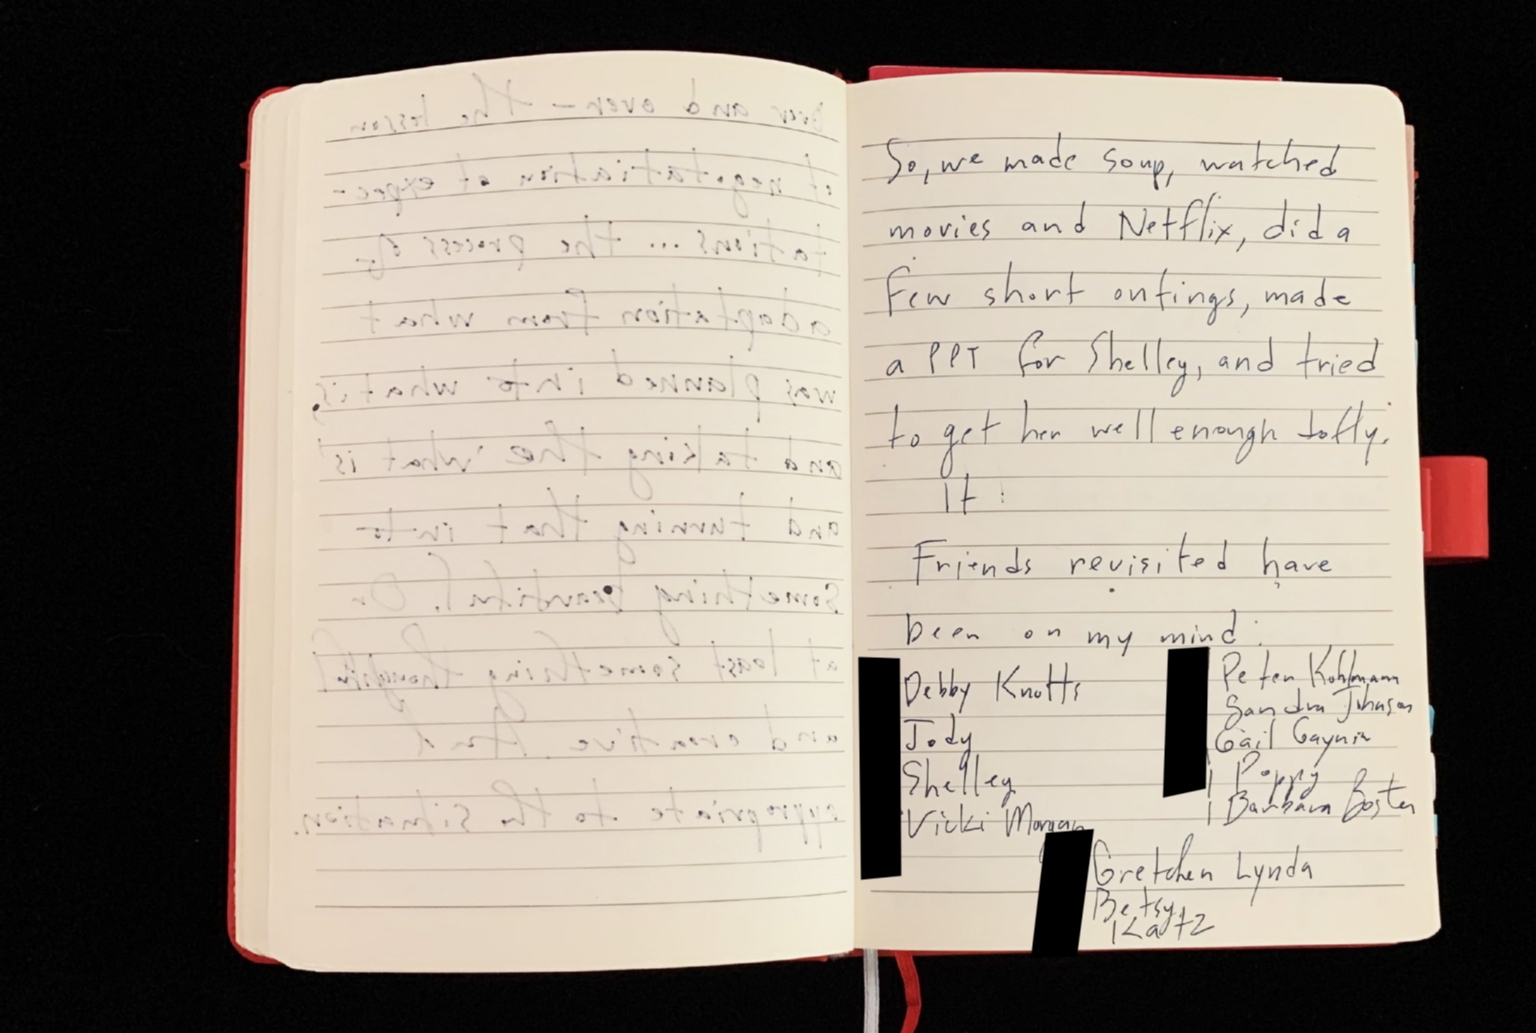 over and over - the lesson
of negotatiation of expec-
tations... the process of
adaptation from what
was planned into what is,
and taking the "what is"
and turning that into
something beautiful. Or
at least something thoughtful
and creative. And
appropriate to the situation.
So, we made soup, watched
movies and Netflix, did a
few short outings, made
a PPT for Shelley, and tried
to get her well enough to fly.
It :
Friends revisited have
been on my mind:
Debby Knotts
Jody
Shelley
Vicki Morgan
Peter Kohlmann
Sandra Johnson
Gail
Poppy
Barbara Boster
Gretchen Lynda
Betsy
Katz